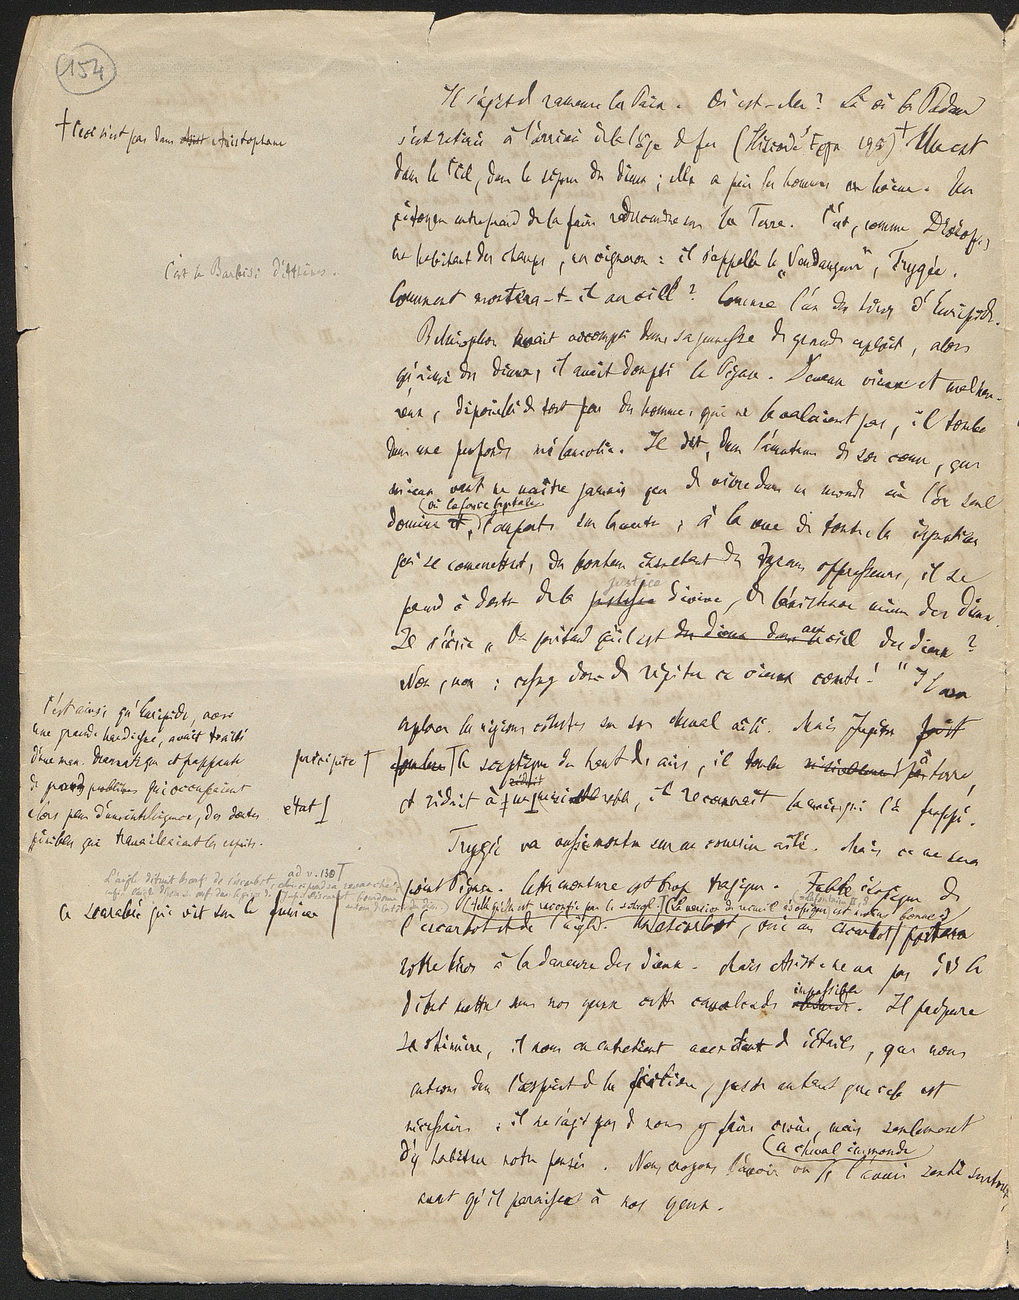 154
Il s'agit de ramener la Paix. Où est-elle ? Là où la Pudeur
s'est retirée à l'arrivée de l'âge de fer (Hésiode 195) + Elle est
dans le Ciel, dans le séjour des dieux ; elle a pris les hommes en haine. Un
citoyen entreprend de la faire redescendre sur la Terre. C'est, comme Dicéopolis
un habitant des champs, un vigneron : il s'appelle le "Vendangeur", Trygée.
Comment montera-t-il au ciel ? Comme l'un des héros d'Euripide.
Bellérophon avait accompli dans sa jeunesse de grands exploits, alors
qu'aimé des dieux, il avait dompté le Pégase. Devenu vieux et malheu-
reux, dépouillé de tout par des hommes qui ne le valaient pas, il tombe
dans une profonde mélancolie. Il dit, dans l'amertume de son cœur, que
mieux vaut ne naître jamais que de vivre dans un monde où l'or seul
(où la force brutale
domine et, l'emporte sur le reste ; à la vue de toutes les injustices
qui se commettent, du bonheur insolent des tyrans oppresseurs, il se
justice
prend à douter de la justice divine, de l'existence même des dieux.
Il s'écrie „ On prétend qu'il est des dieux dans au ciel des dieux ?
Non, non : cessez donc de répéter ce vieux conte ! " Il va
explorer les régions célestes sur son cheval ailé. Mais Jupiter
le sceptique du haut des airs, il tombe à terre,
et réduit à, il reconnaît la main qui l'a frappé.
Trygée va aussi monter sur un coursier ailé. Mais ce ne sera
point Pégase. Cette monture est trop tragique. Fable ésopique de
l'escarbot et de l'aigle. Un escarbot, oui un escarbot portera
notre héros à la demeure des dieux. Mais Arist. ne va pas dès le
impossible
début mettre sous nos yeux cette cavalcade absurde. Il prépare
sa chimère, il nous en entretient avec tant de détails, que nous
entrons dans l'esprit de la fiction, juste autant que cela est
nécessaire : il ne s'agit pas de nous y faire croire, mais seulement
d'y habituer notre pensée. Nous croyons l'avoir vu
(ce cheval immonde)
l'avoir senti surtout
avant qu'il paraisse à nos yeux.
+ Ceci n'est pas dans Aristophane
C'est le Barbisi d'Athènes.
C'est ainsi qu'Euripide, avec
une grande hardiesse, avait traité
d'une man. dramatique et frappante
de grands problèmes qui occupaient
alors plus d'une intelligence, des doutes
pénibles qui travaillaient les esprits.
précipite
état
ad v. 130
Ce scarabée qui vit sur le fumier